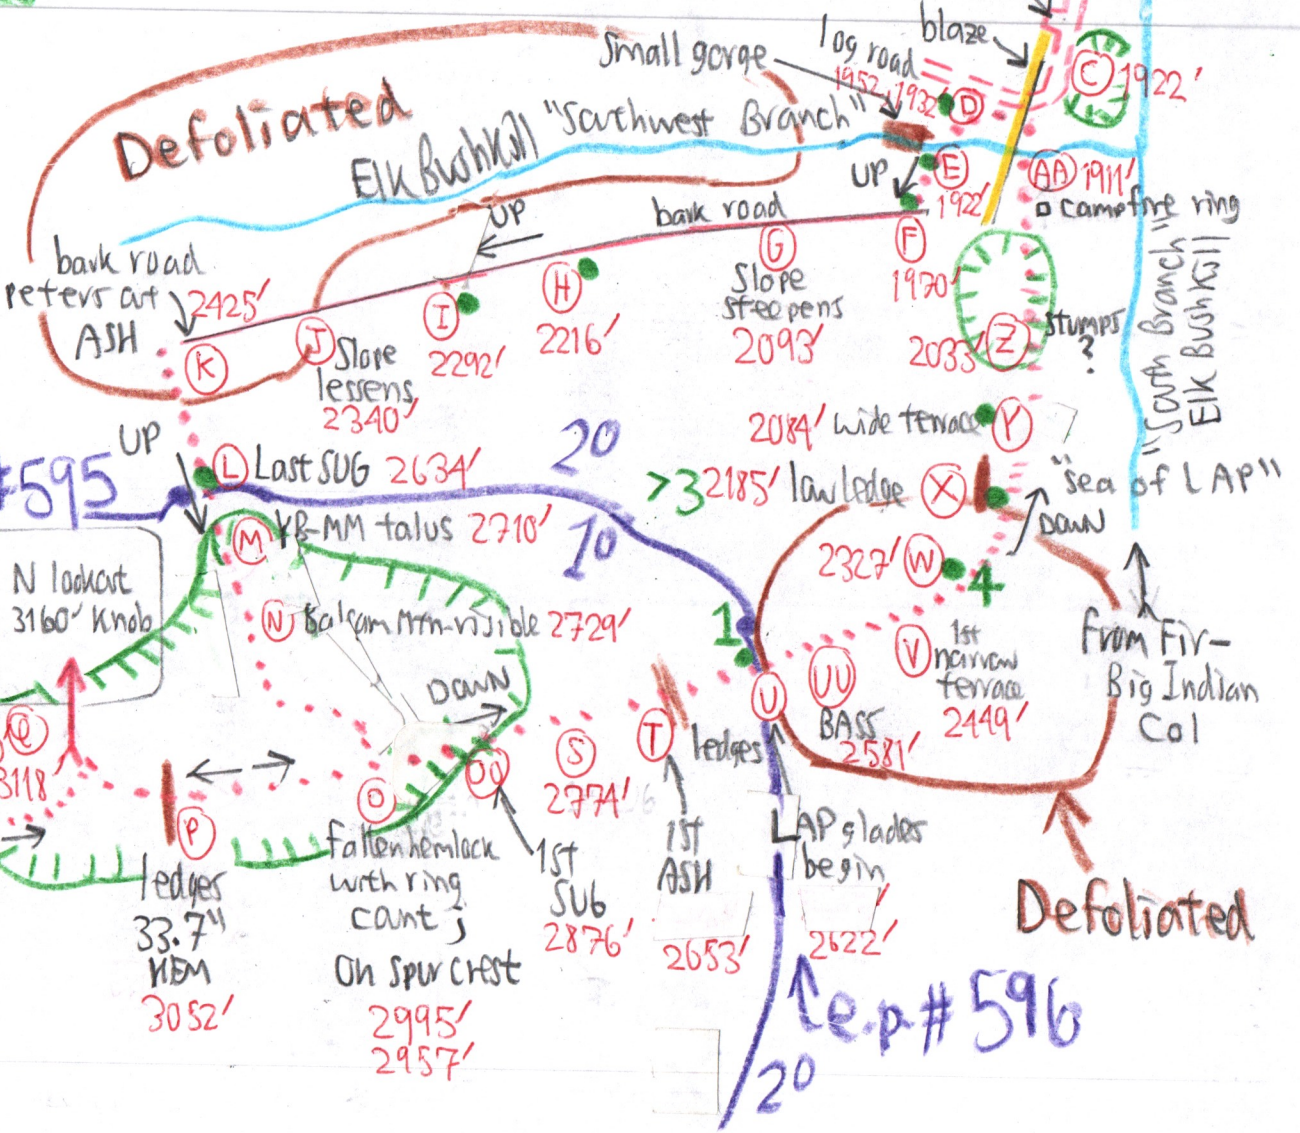 Small gorge
log road
blaze
1952'
1932'
D
C
1922'
Defoliated
Elk Bushkill
"Southwest Branch"
UP
E
1922'
AA
1911'
campfire ring
UP
bark road
F
1970'
G
Slope
steepens
2093'
H
2216'
I
2292'
bark road
peters out
ASH
2425'
K
J
Slope
lessens
2340'
Z
2033'
stumps
?
"South Branch"
Elk Bushkill
UP
L
Last SUG 2634'
20
2084' wide terrace
Y
#595
>3
2185' low ledge
X
"sea of LAP"
DOWN
M
KB-MM talus 2710'
10
2327'
W
4
N lookout
3160' Knob
N
Balsam Mtn-visible 2729'
1
V
1st
narrow
terrace
2449'
from Fir-
Big Indian
Col
DOWN
U
UU
BASS
2581'
Q
3118
OO
S
2774'
T
ledges
O
P
ledges
33.7"
HEM
3052'
Fallen hemlock
with ring
count;
On spur crest
2995'
2957'
1ST
SUG
2876'
1ST
ASH
2653'
LAP glades
begin
2622'
Defoliated
e.p.#596
20